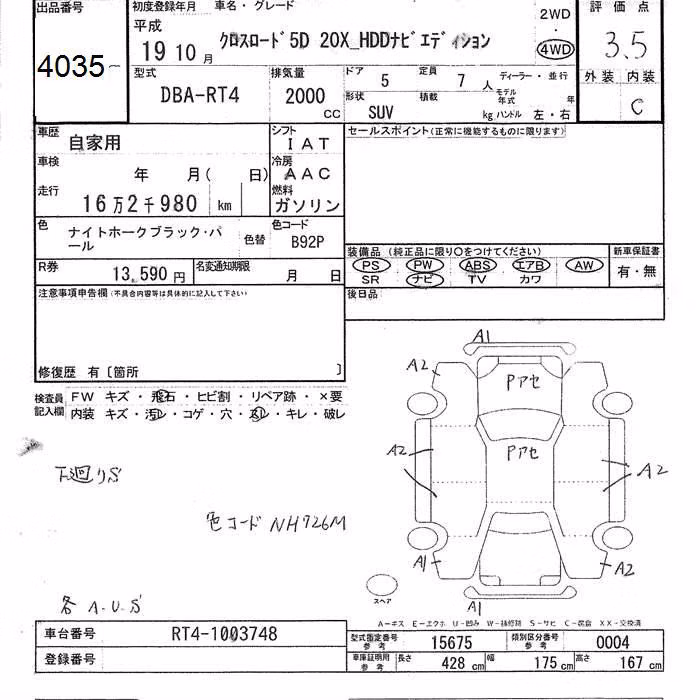 出品番号
4035
初度登録年月
平成
19 10 月
車名・グレード
クロスロード 5D 20X_HDDナビエディション
2WD
・
4WD
評価点
3.5
外装 内装
C
型式
DBA-RT4
排気量
2000
CC
ドア 5
定員 7 人
ディーラー・並行
モデル年式 年
形状 SUV
積載 kg
ハンドル 左・右
車歴 自家用
シフト
IAT
車検 年 月( 日)
冷房
AAC
走行
16万2千980 km
燃料
ガソリン
色 ナイトホークブラック・パール
色替
色コード
B92P
R券 13,590 円
名変通知期限 月 日
セールスポイント(正常に機能するものに限ります)
装備品 (純正品に限り○をつけてください)
PS PW ABS エアB AW
SR ナビ TV カワ
新車保証書
有・無
後日品
注意事項申告欄(不具合内容等は具体的に記入して下さい)
修復歴 有〔箇所 〕
検査員記入欄
FW キズ・飛石・ヒビ割・リペア跡・×要
内装 キズ・汚レ・コゲ・穴・スレ・キレ・破レ
下廻りS
色コード NH726M
各 A・U・S
A1
A2
Pアセ
Pアセ
A2
A2
A1
A2
A1
スペア
A-キズ E-エクボ U-凹み W-補修跡 S-サビ C-腐食 XX-交換済
車台番号 RT4-1003748
登録番号
型式指定番号 参考 15675
類別区分番号 参考 0004
車庫証明用 参考 長さ 428 cm 幅 175 cm 高さ 167 cm